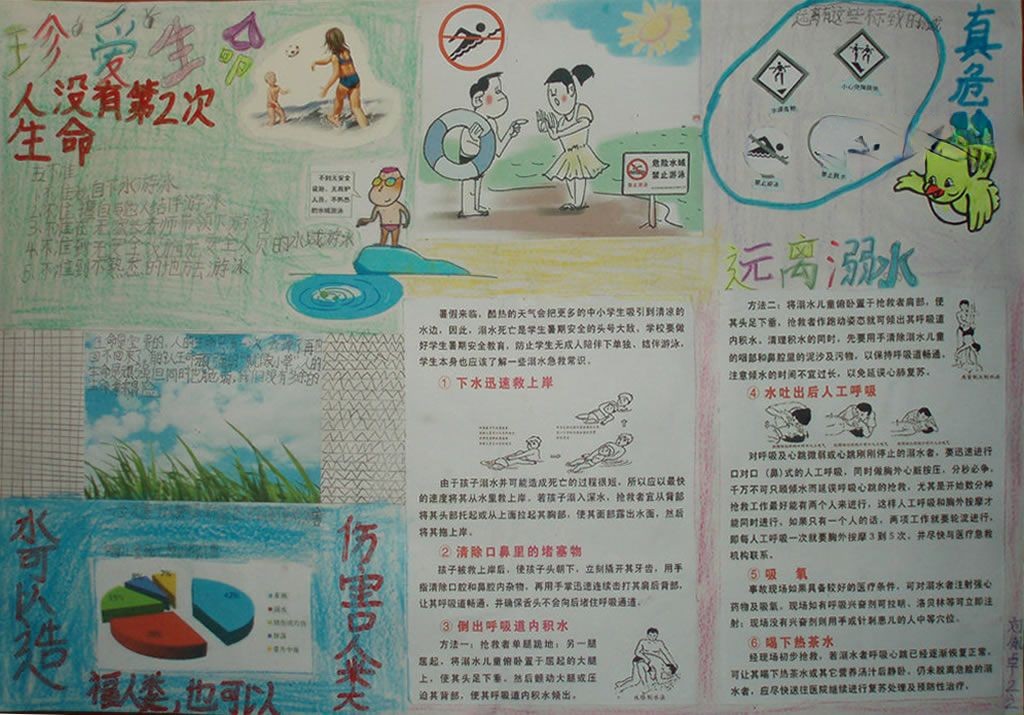 珍爱生命
人没有第2次
生命
五不准
1.不准私自下水游泳
3.不准在无家长老师带领下游泳
4.不准到无安全设施无救生人员的水域游泳
5.不准到不熟悉的地方去游泳
不到无安全
设施、无救护
人员、不熟悉
的水域游泳
危险水域
禁止游泳
禁止游泳
远离有这些标致的地域
水深危险
禁止游泳
禁止跳水
真危险
远离溺水
水可以造
福人类，也可以
伤害人类
43%
暑假来临，酷热的天气会把更多的中小学生吸引到清凉的
水边，因此，溺水死亡是学生暑期安全的头号大敌，学校要做
好学生暑期安全教育，防止学生无成人陪伴下单独、结伴游泳，
学生本身也应该了解一些溺水急救常识。
① 下水迅速救上岸
由于孩子溺水并可能造成死亡的过程很短，所以应以最快
的速度将其从水里救上岸。若孩子溺入深水，抢救者宜从背部
将其头部托起或从上面拉起其胸部，使其面部露出水面，然后
将其拖上岸。
② 清除口鼻里的堵塞物
孩子被救上岸后，使孩子头朝下，立刻撬开其牙齿，用手
指清除口腔和鼻腔内杂物，再用手掌迅速连续击打其肩后背部，
让其呼吸道畅通，并确保舌头不会向后堵住呼吸通道。
③ 倒出呼吸道内积水
方法一：抢救者单腿跪地：另一腿
屈起，将溺水儿童俯卧置于屈起的大腿
上，使其头足下垂。然后颤动大腿或压
迫其背部，使其呼吸道内积水倾出。
方法二：将溺水儿童俯卧置于抢救者肩部，使
其头足下垂，抢救者作跑动姿态就可倾出其呼吸道
内积水。清理积水的同时，先要用手清除溺水儿童
的咽部和鼻腔里的泥沙及污物，以保持呼吸道畅通。
注意倾水的时间不宜过长，以免延误心肺复苏。
④ 水吐出后人工呼吸
对呼吸及心跳微弱或心跳刚刚停止的溺水者，要迅速进行
口对口（鼻）式的人工呼吸，同时做胸外心脏按压，分秒必争，
千万不可只顾倾水而延误呼吸心跳的抢救，尤其是开始数分种
抢救工作最好能有两个人来进行，这样人工呼吸和胸外按摩才
能同时进行。如果只有一个人的话，两项工作就要轮流进行，
即每人工呼吸一次就要胸外按摩3到5次，并尽快与医疗急救
机构联系。
⑤ 吸 氧
事故现场如果具备较好的医疗条件，可对溺水者注射强心
药物及吸氧。现场如有呼吸兴奋剂可拉明、洛贝林等可立即注
射；现场没有兴奋剂则用手或针刺患儿的人中等穴位。
⑥ 喝下热茶水
经现场初步抢救，若溺水者呼吸心跳已经逐渐恢复正常，
可让其喝下热茶水或其它营养汤汁后静卧。仍未脱离危险的溺
水者，应尽快送往医院继续进行复苏处理及预防性治疗。